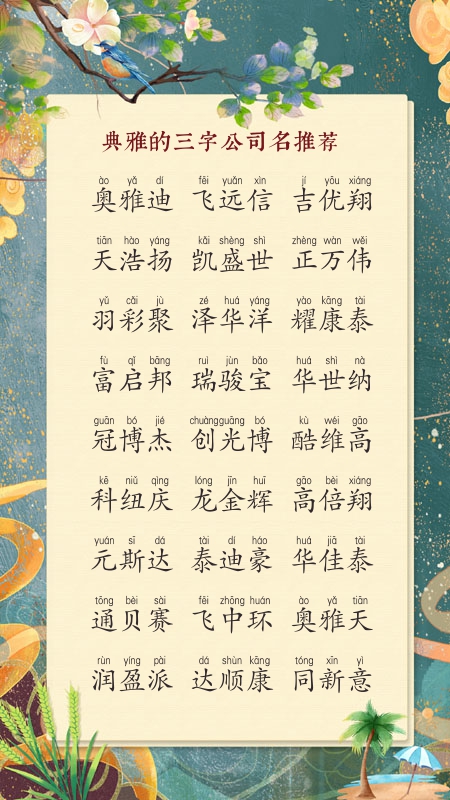 典雅的三字公司名推荐
ào yǎ dí fēi yuǎn xìn jí yōu xiáng
奥雅迪 飞远信 吉优翔
tiān hào yáng kǎi shèng shì zhèng wàn wěi
天浩扬 凯盛世 正万伟
yǔ cǎi jù zé huá yáng yào kāng tài
羽彩聚 泽华洋 耀康泰
fù qǐ bāng ruì jùn bǎo huá shì nà
富启邦 瑞骏宝 华世纳
guān bó jié chuàngguāng bó kù wéi gāo
冠博杰 创光博 酷维高
kē niǔ qìng lóng jīn huī gāo bèi xiáng
科纽庆 龙金辉 高倍翔
yuán sī dá tài dí háo huá jiā tài
元斯达 泰迪豪 华佳泰
tōng bèi sài fēi zhōng huán ào yǎ tiān
通贝赛 飞中环 奥雅天
rùn yíng pài dá shùn kāng tóng xīn yì
润盈派 达顺康 同新意